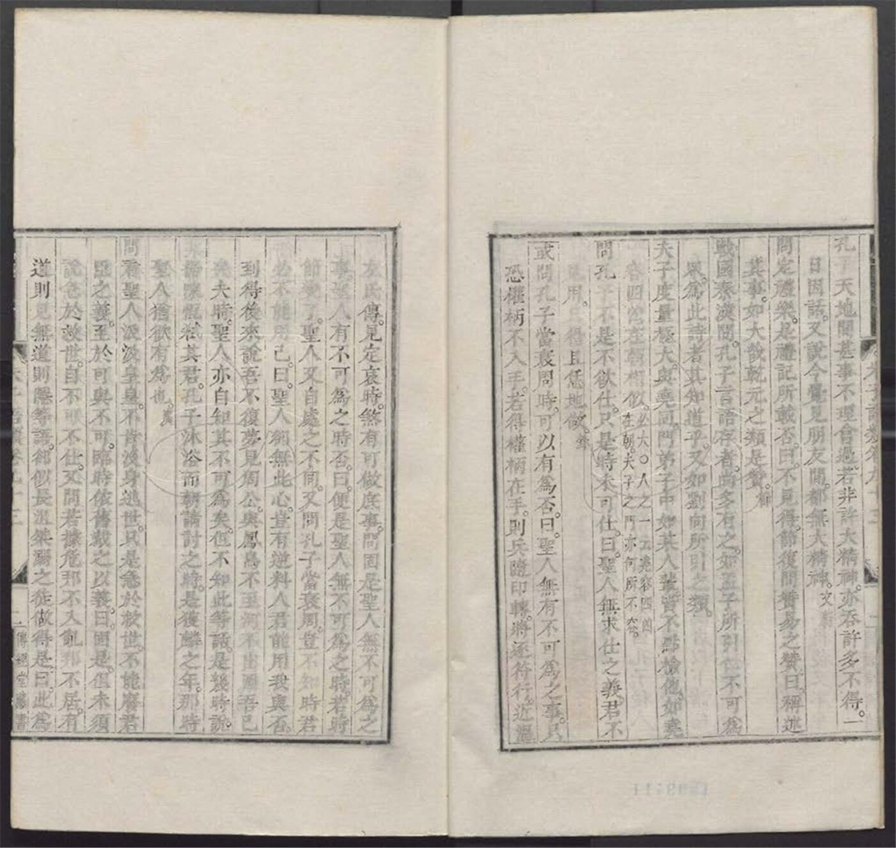 孔子天地間甚事不理會過若非許大精神亦吞許多不得一
日因話又說今覺見朋友間都無大精神文蔚
問定禮樂是禮記所載否曰不見得節復問贊易之贊曰稱述
其事如大哉乾元之類是贊節
戰國秦漢間孔子言語存者尚多有之如孟子所引仁不可為
眾為此詩者其知道乎又如劉向所引之類
夫子度量極大與堯同門弟子中如某人輩皆不點檢他如堯
容四凶在朝相似必大○人之一云堯容四凶在朝夫子之門亦何所不容
問孔子不是不欲仕只是時未可仕曰聖人無求仕之義君不
見用只得且恁地做
或問孔子當衰周時可以有為否曰聖人無有不可為之事只
恐權柄不入手若得權柄在手則兵隨印轉將逐符行近溫
左氏傳見定哀時煞有可做底事問固是聖人無不可為之
事聖人有不可為之時否曰便是聖人無不可為之時若時
節變了聖人又自處之不同又問孔子當衰周豈不知時君
必不能用己曰聖人卻無此心豈有逆料人君能用我與否
到得後來說吾不復夢見周公與鳳鳥不至河不出圖吾已
矣夫時聖人亦自知其不可為矣但不知此等話是幾時說
來陳恆弒其君孔子沐浴而朝請討之時是獲麟之年那時
聖人猶欲有為也
問看聖人汲汲皇皇不肯沒身逃世只是急於救世不能廢君
臣之義至於可與不可臨時依舊裁之以義曰固是但未須
說急於救世自不可不仕又問若據危邦不入亂邦不居有
道則見無道則隱等語卻似長沮桀溺之徒做得是曰此為
朱子語類卷九十三
二